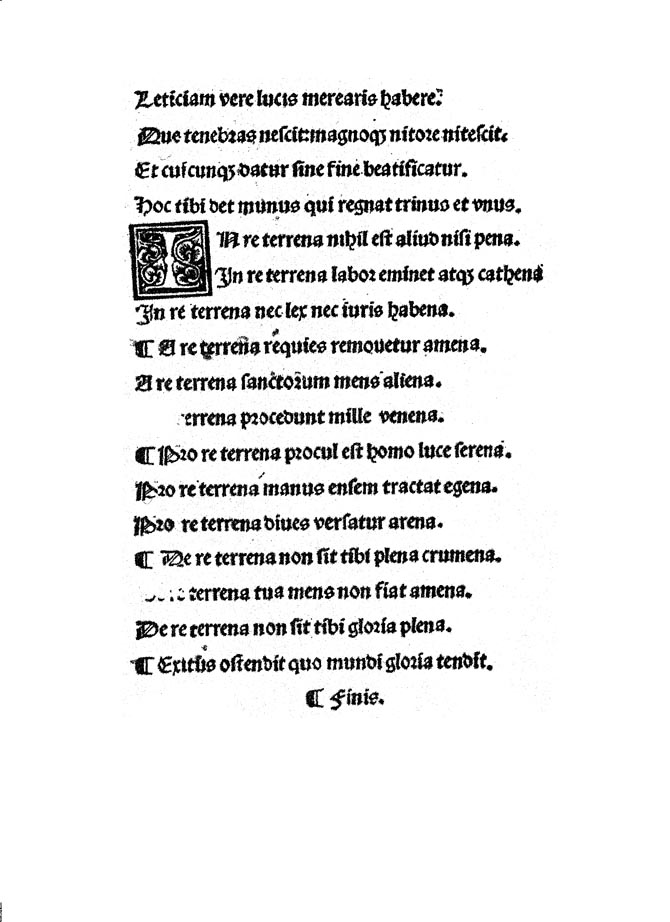 Leticiam vere lucis merearis habere:
Que tenebras nescit: magnoqꝫ nitore nitescit.
Et cuiuscunqꝫ datur sine fine beatificatur.
Hoc tibi det munus qui regnat trinus et vnus.
IN re terrena nihil est aliud nisi pena.
In re terrena labor eminet atqꝫ cathena
In re terrena nec lex nec iuris habena.
¶ A re terrena requies remouetur amena.
A re terrena sanctorum mens aliena.
errena procedunt mille venena.
¶ Pro re terrena procul est homo luce serena.
Pro re terrena manus ensem tractat egena.
Pro re terrena diues versatur arena.
¶ De re terrena non sit tibi plena crumena.
terrena tua mens non fiat amena.
De re terrena non sit tibi gloria plena.
¶ Exitus ostendit quo mundi gloria tendit.
¶ Finis.